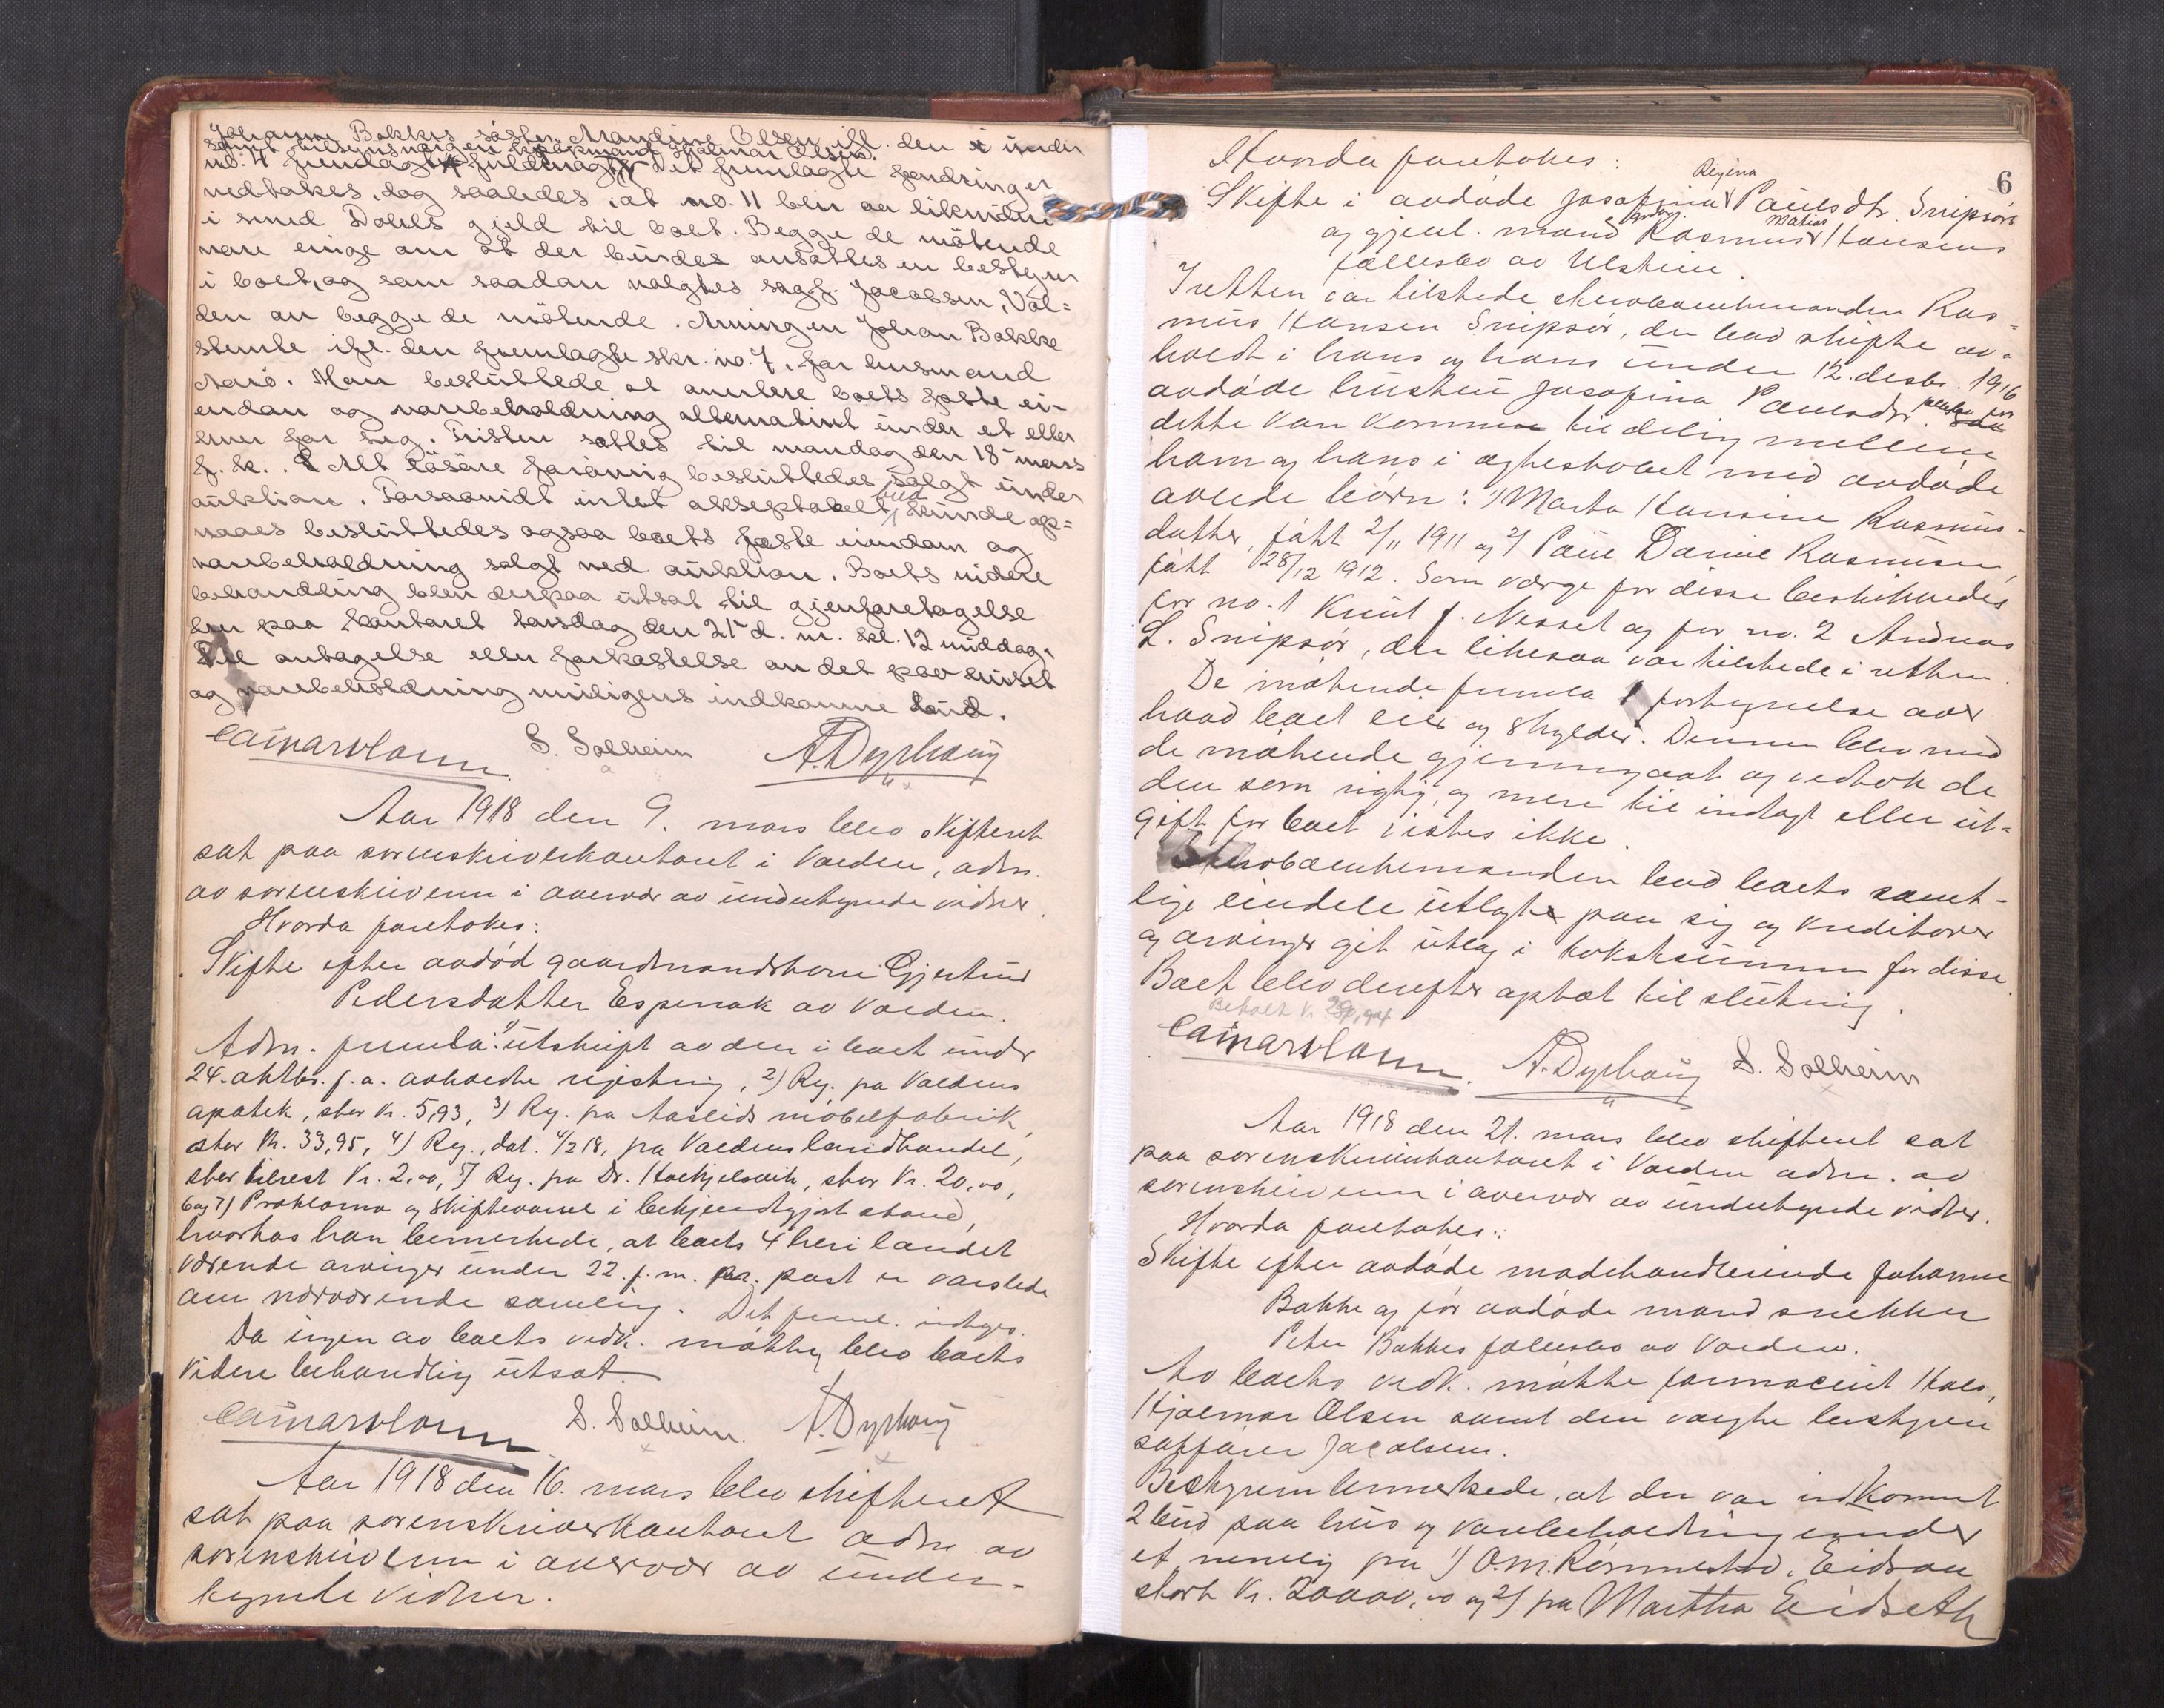 Johanna Bakkes søster Nandine Olsen ifl. den i under
samt tilsynsmannen Hjalmar Olsen.
no. 4 fremlagte fuldmagt. Det fremlagte fordringer
vedtakes, dog saaledes, at no. 11 blir at likvidere
i smed Dahls gjeld til boet. Begge de møtende
var enige om at der burdes ansættes en bestyrer
i boet, og som saadan valgtes sagf. Jacobsen, Vol=
den av begge de møtende. Arvingen Johan Bakke
stemte ifl. den fremlagte skr. no. 7, for lensmand
Aarø. Man besluttede at avertere boets faste ei-
endom og varebeholdning alternativt under et eller
hver for sig. Fristen sattes til mandag den 18 mars
f. k. Alt løsøre forøvrig besluttedes solgt under
auktion. Forsaavidt intet akseptabelt bud kunde op=
naaes besluttedes ogsaa boets faste eiendom og
varebeholdning solgt ved auktion. Boets videre
behandling blev derpaa utsat til gjenforetagelse
her paa kontoret torsdag den 21 d. m. kl. 12 middag,
til antagelse eller forkastelse av det paa huset
og varebeholdning muligens indkomne bud.
S. Solheim A. Dyrhaug
Aar 1918 den 9. mars blev skifteret
sat paa sorenskriverkontoret i Volden, adm.
av sorenskriveren i overvær av undertegnede vidner.
Hvorda foretokes:
Skifte efter avdød gaardmandskone Gjertrud
Pedersdatter Espenak av Volden.
Adm. fremla: 1) utskrift av den i boet under
24. oktbr. f. a. avholdte registrering, 2) Reg. fra Voldens
apotek, stor kr. 5,93, 3) Reg. fra Aasleids møbelfabrik,
stor kr. 33,95, 4) Reg., dat. 4/2 18, fra Voldens landhandel,
stor tilrest kr. 2,00, 5) Reg. fra Dr. Koekjelsvik, stor kr. 20,00,
6 og 7) Proklama og skiftevarsel i bekjendtgjort stand,
hvorhos han bemerkede, at boets 4 her i landet
værende arvinger under 22. f. m. pr. post er varslede
om nærværende samling. Det freml. indtages.
Da ingen av boets vedk. møtte, blev boets
videre behandling utsat.
S. Solheim. A. Dyrhaug
Aar 1918 den 16. mars blev skifteret
sat paa sorenskriverkontoret adm. av
sorenskriveren i overvær av under-
tegnede vidner.
6
Hvorda foretokes:
Skifte i avdøde Josefina Regina Paulsdtr. Snipsøir
og gjenl. mand gaardbr. Rasmus Matias Hansens
fællesbo av Ulstein.
I retten var tilstede skrobænkemanden Ras=
mus Hansen Snipsør, der bad skifte av=
holdt i hans og hans under 12. desbr. 1916
avdøde hustru Josefina Paulsdtr. fællesbo før
dette kan komme til deling mellem
ham og hans i ægteskabet med avdøde
avlede børn: 1) Marta Hansine Rasmus-
datter, født 2/11 1911 og 2) Paul Daniel Rasmussen,
født 28/12 1912. Som værge for disse beskikkedes
for no. 1 Knut J. Nesset og for no. 2 Andreas
L. Snipsør, der likesaa var tilstede i retten.
De møtende fremla fortegnelse over
hvad boet eier og skylder. Denne blev med
de møtende gjennemgaat og vedtok de
den som rigtig, og mere til indtægt eller ut=
gift for boet vistes ikke.
Skrobænkemanden bad boets samt-
lige eiendele utlagte paa sig og kreditorer
og arvinger git utlæg i takstsummen for disse.
Boet blev derefter optat til slutning.
Betalt kr.
A. Dyrhaug S. Solheim
Aar 1918 den 21. mars blev skifteret sat
paa sorenskriverkontoret i Volden adm. av
sorenskriveren i overvær av undertegnede vidner.
Hvorda foretokes:
Skifte efter avdøde modehandlerinde Johanna
Bakke og før avdøde mand snekker
Peter Bakkes fællesbo av Volden.
Av boets vedk. møtte farmaceut Hals,
Hjalmar Olsen samt den valgte bestyrer
sakfører Jacobsen.
Bestyreren bemerkede, at der var indkommet
2 bud paa hus og varebeholdning under
et, nemlig fra 1) O. M. Rørmestad, Eidsaa
stort kr. 20000,00 og 2) fra Martha Eidseth